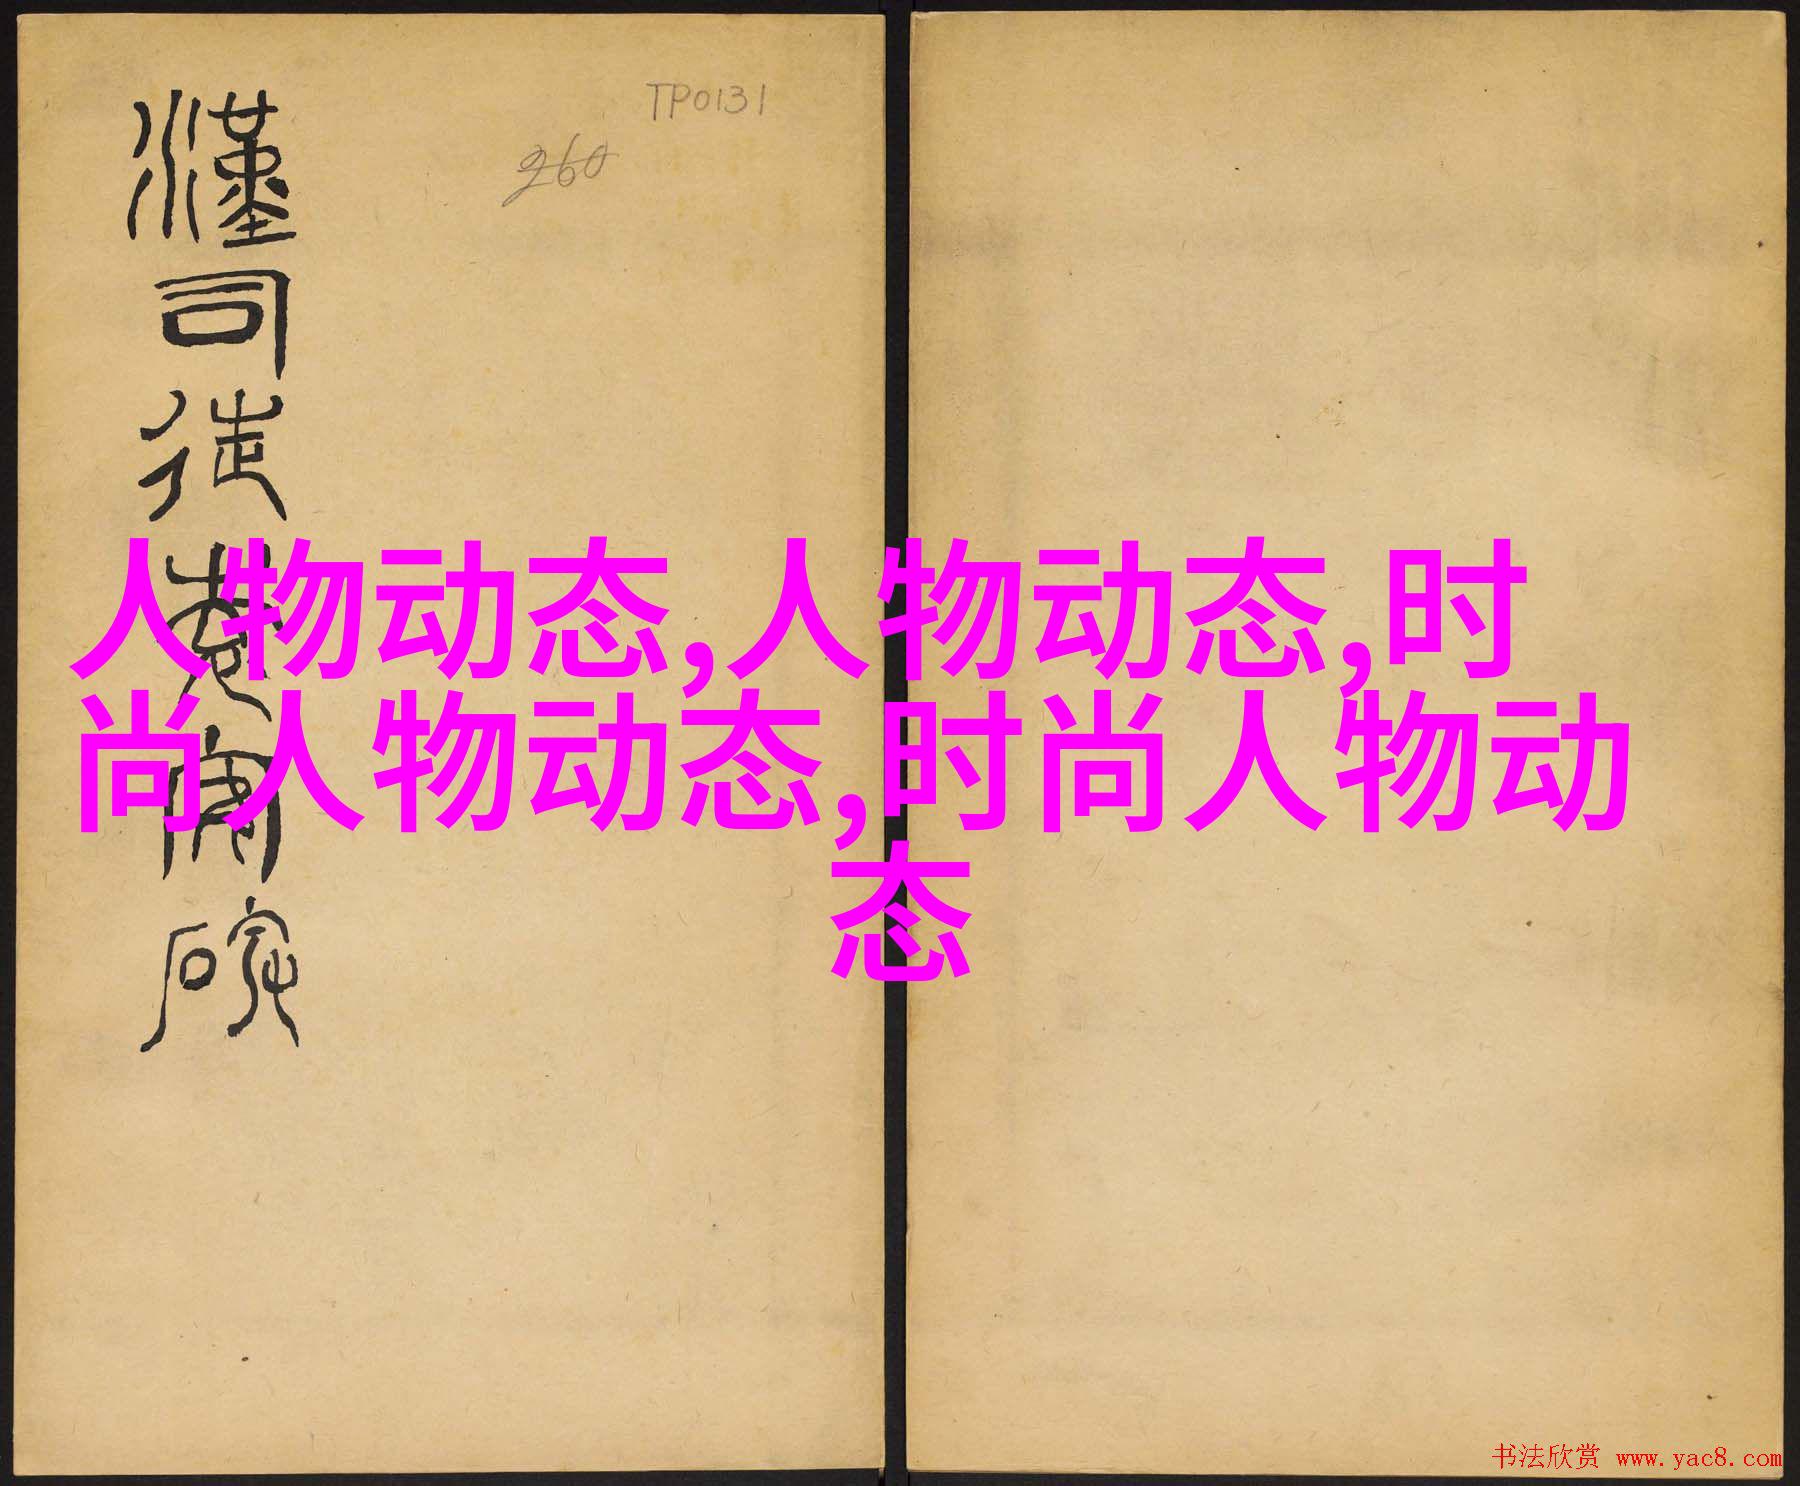 TP0131
260
漢司徒袁安碑
人物动态,人物动态,时
尚人物动态,时尚人物动
态
书法欣赏 www.yac8.com